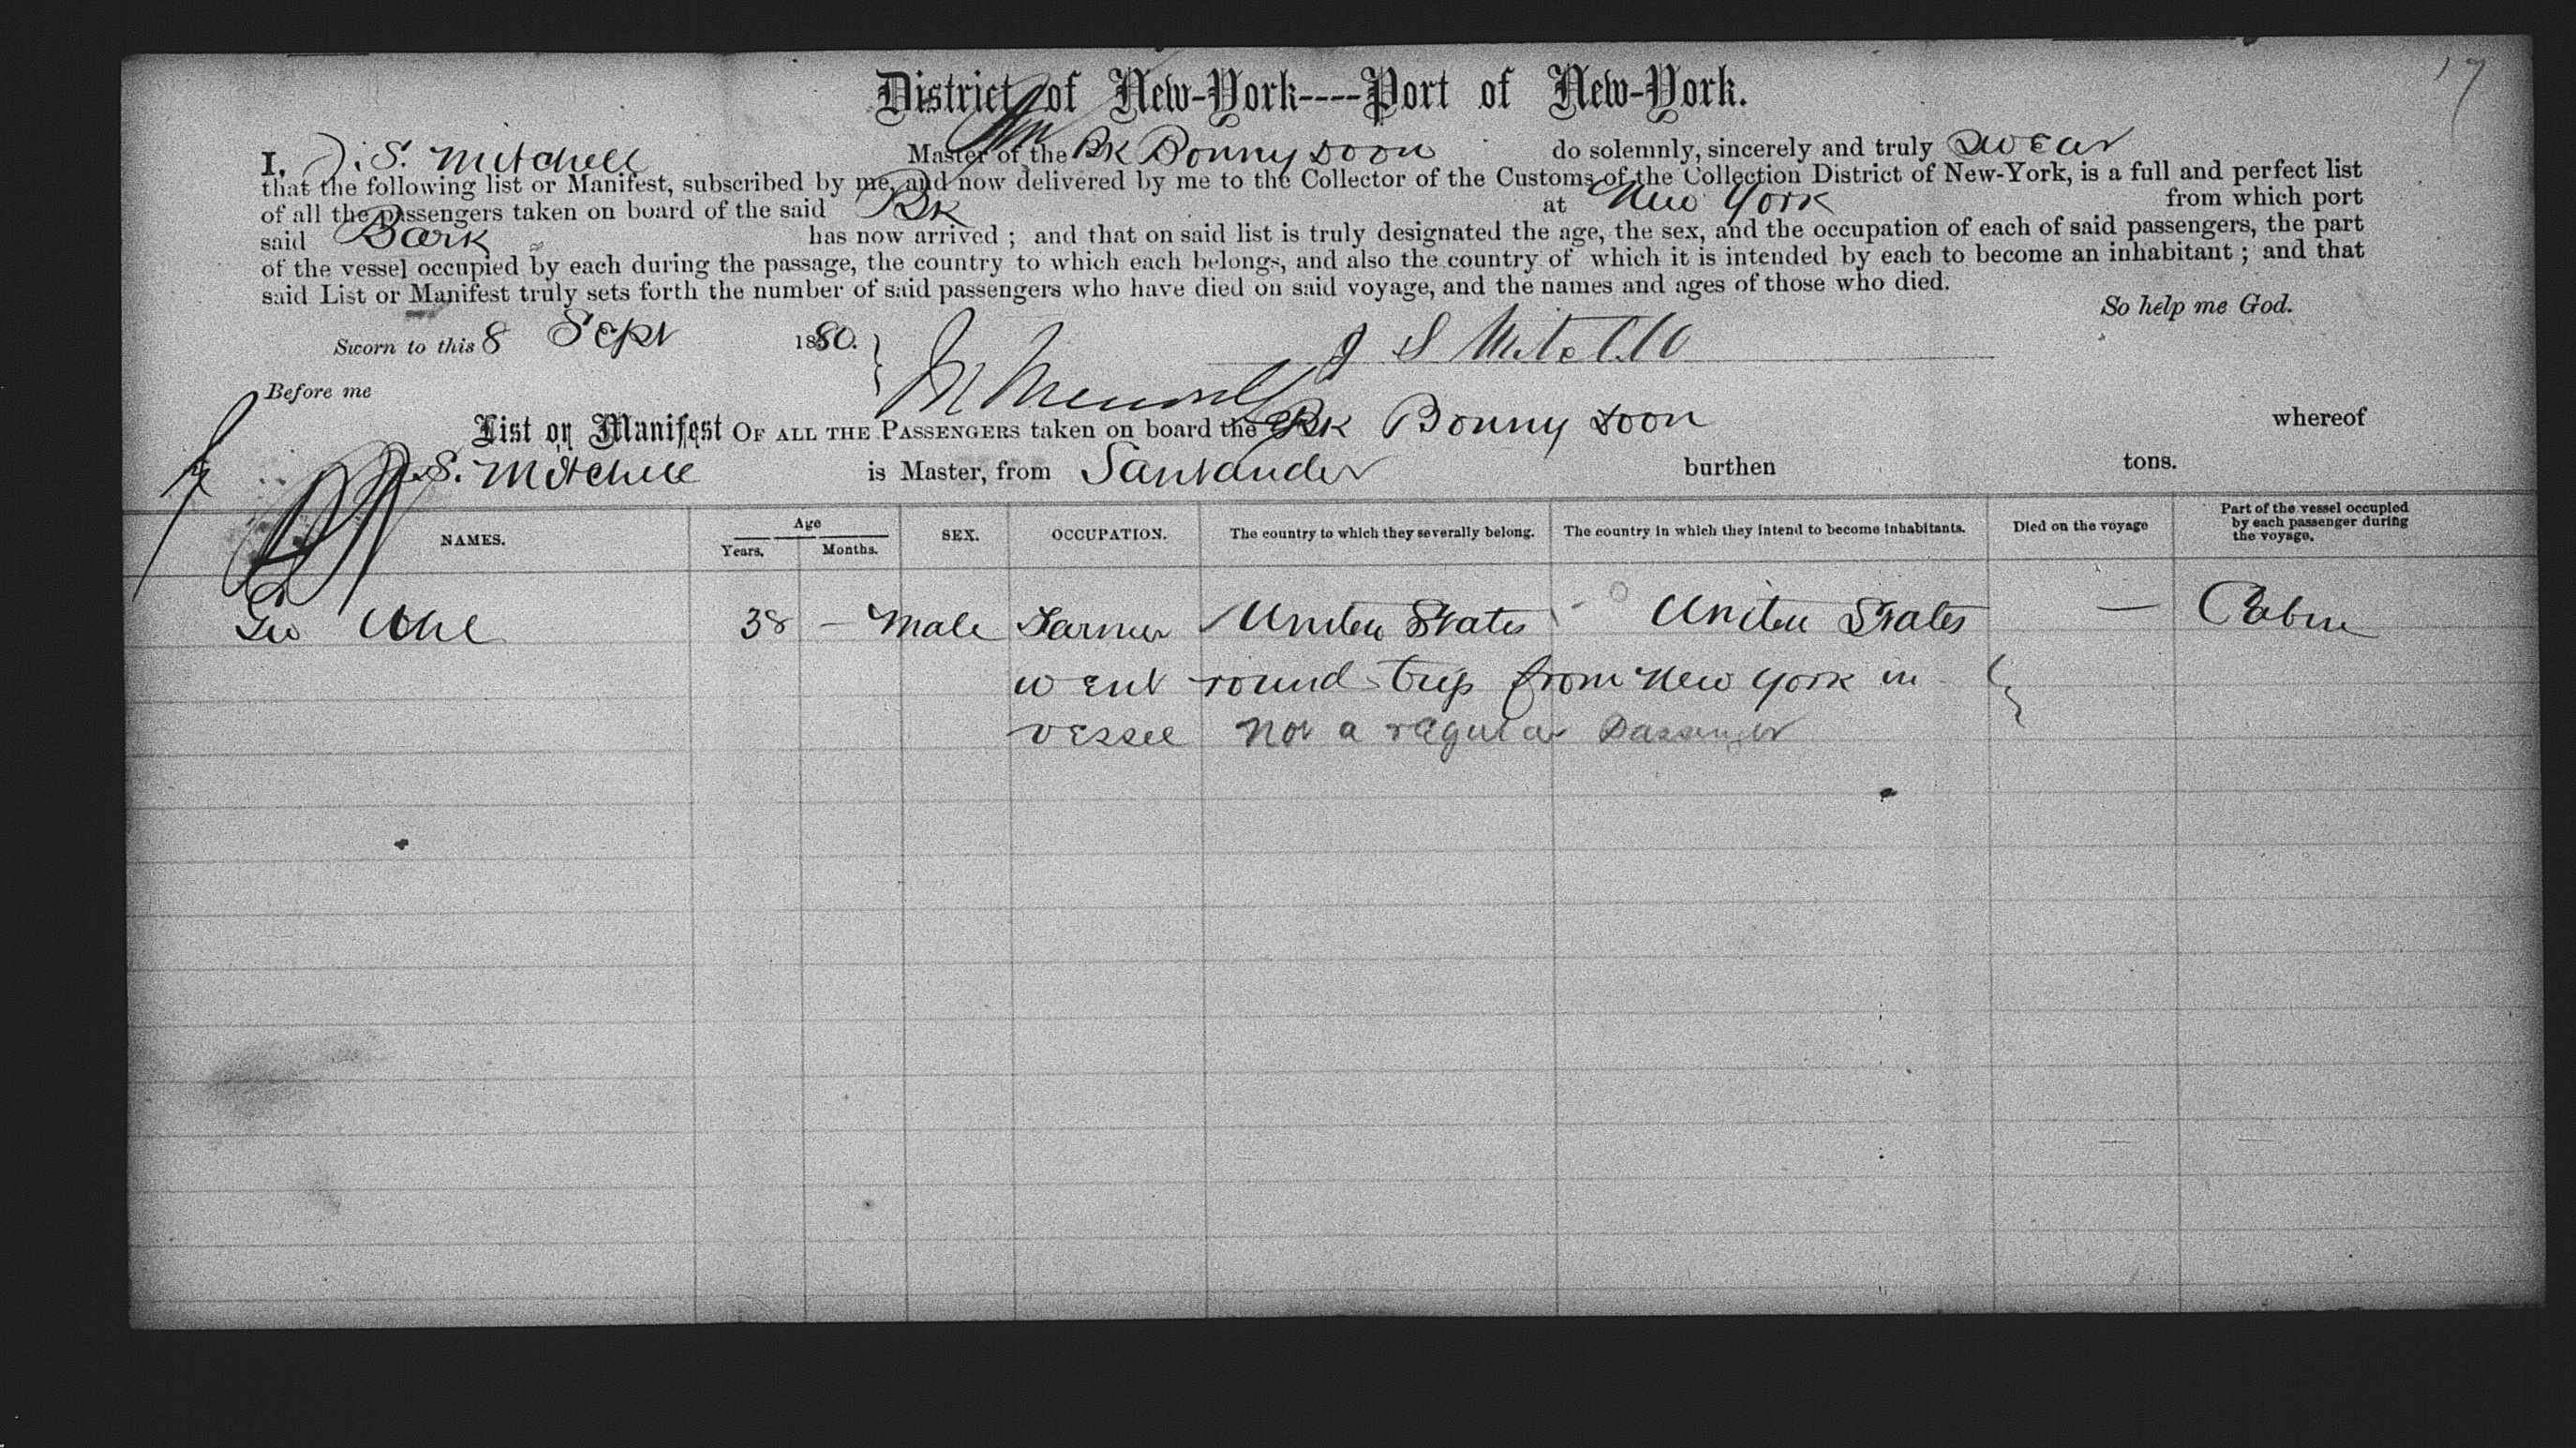 17
District of New-York----Port of New-York.
I, J. S. Mitchell Master of the Bk Bonny Doon do solemnly, sincerely and truly swear
that the following list or Manifest, subscribed by me, and now delivered by me to the Collector of the Customs of the Collection District of New-York, is a full and perfect list
of all the passengers taken on board of the said Bk at New York from which port
said Bark has now arrived ; and that on said list is truly designated the age, the sex, and the occupation of each of said passengers, the part
of the vessel occupied by each during the passage, the country to which each belongs, and also the country of which it is intended by each to become an inhabitant ; and that
said List or Manifest truly sets forth the number of said passengers who have died on said voyage, and the names and ages of those who died.
So help me God.
Sworn to this 8 Sept 1880. J S Mitchell
Before me
List or Manifest OF ALL THE PASSENGERS taken on board the Bk Bonny Doon whereof
J. S. Mitchell is Master, from Santander burthen tons.
NAMES. Age Years. Months. SEX. OCCUPATION. The country to which they severally belong. The country in which they intend to become inhabitants. Died on the voyage Part of the vessel occupied by each passenger during the voyage.
Geo 38 — Male Farmer United States United States — Cabin
went round trip from New York in
vessel not a regular Passenger